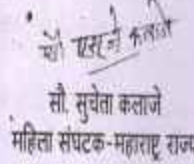 सौ. सुचेता कलाजे
महिला संघटक-महाराष्ट्र राज्य